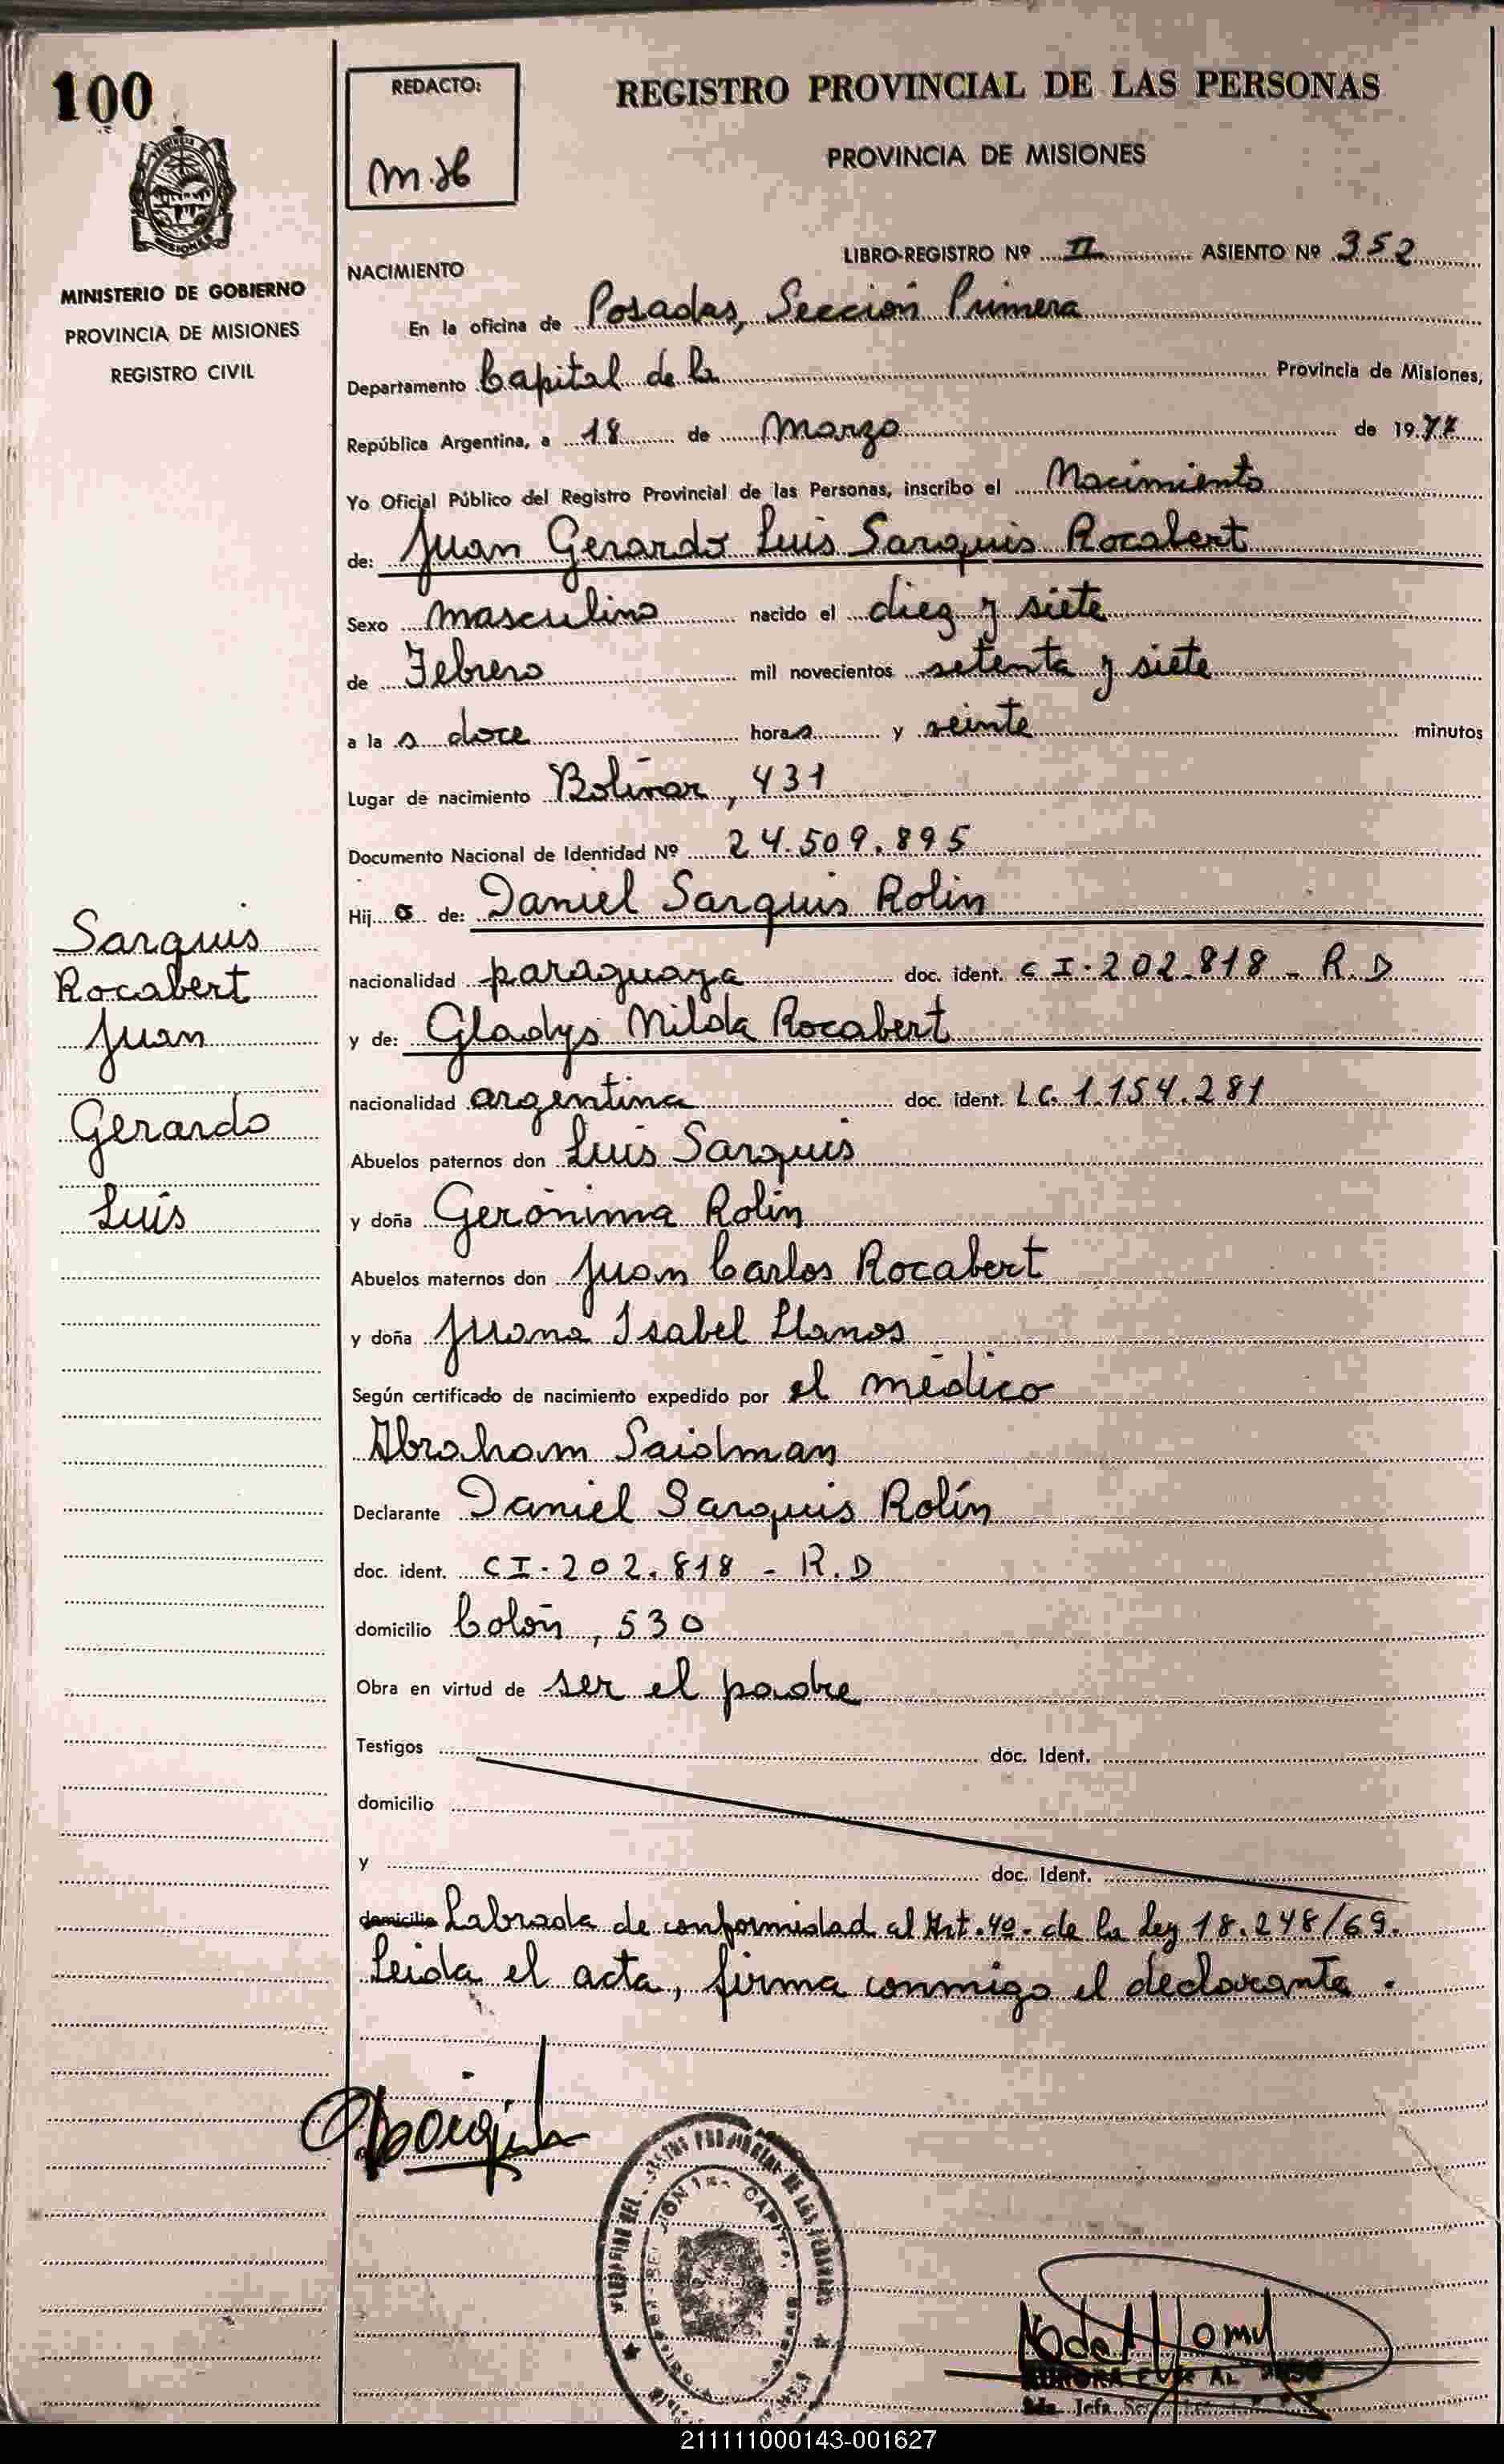 100
REDACTO:
M.H
REGISTRO PROVINCIAL DE LAS PERSONAS
PROVINCIA DE MISIONES
MISIONES
MINISTERIO DE GOBIERNO
PROVINCIA DE MISIONES
REGISTRO CIVIL
LIBRO-REGISTRO Nº II ASIENTO Nº 352
NACIMIENTO
En la oficina de Posadas, Sección Primera
Departamento Capital de la Provincia de Misiones,
República Argentina, a 18 de Marzo de 1977
Yo Oficial Público del Registro Provincial de las Personas, inscribo el Nacimiento
de: Juan Gerardo Luis Sarquis Rocabert
Sexo masculino nacido el diez y siete
de Febrero mil novecientos setenta y siete
a la s doce horas y veinte minutos
Lugar de nacimiento Bolívar, 431
Documento Nacional de Identidad Nº 24.509.895
Hij o de: Daniel Sarquis Rolin
nacionalidad paraguaya doc. ident. CI.202.818 - R.D
y de: Gladys Nilda Rocabert
nacionalidad argentina doc. ident. LC. 1.154.281
Abuelos paternos don Luis Sarquis
y doña Gerónima Rolin
Abuelos maternos don Juan Carlos Rocabert
y doña Juana Isabel Llanos
Según certificado de nacimiento expedido por el médico
Abraham Saidman
Declarante Daniel Sarquis Rolín
doc. ident. CI.202.818 - R.D
domicilio Colón, 530
Obra en virtud de ser el padre
Testigos doc. Ident.
domicilio
y doc. Ident.
domicilio Labrada de conformidad al Art.4º- de la Ley 18.248/69.
Leida el acta, firma conmigo el declarante.
Sarquis
Rocabert
Juan
Gerardo
Luís
211111000143-001627